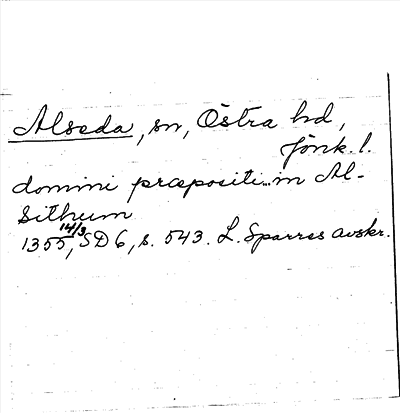 Alseda, sn, Östra hd,
Jönk. l.
domini præpositi..in Al-
sithum
1355 14/3, SD 6, s. 543. L. Sparres avskr.